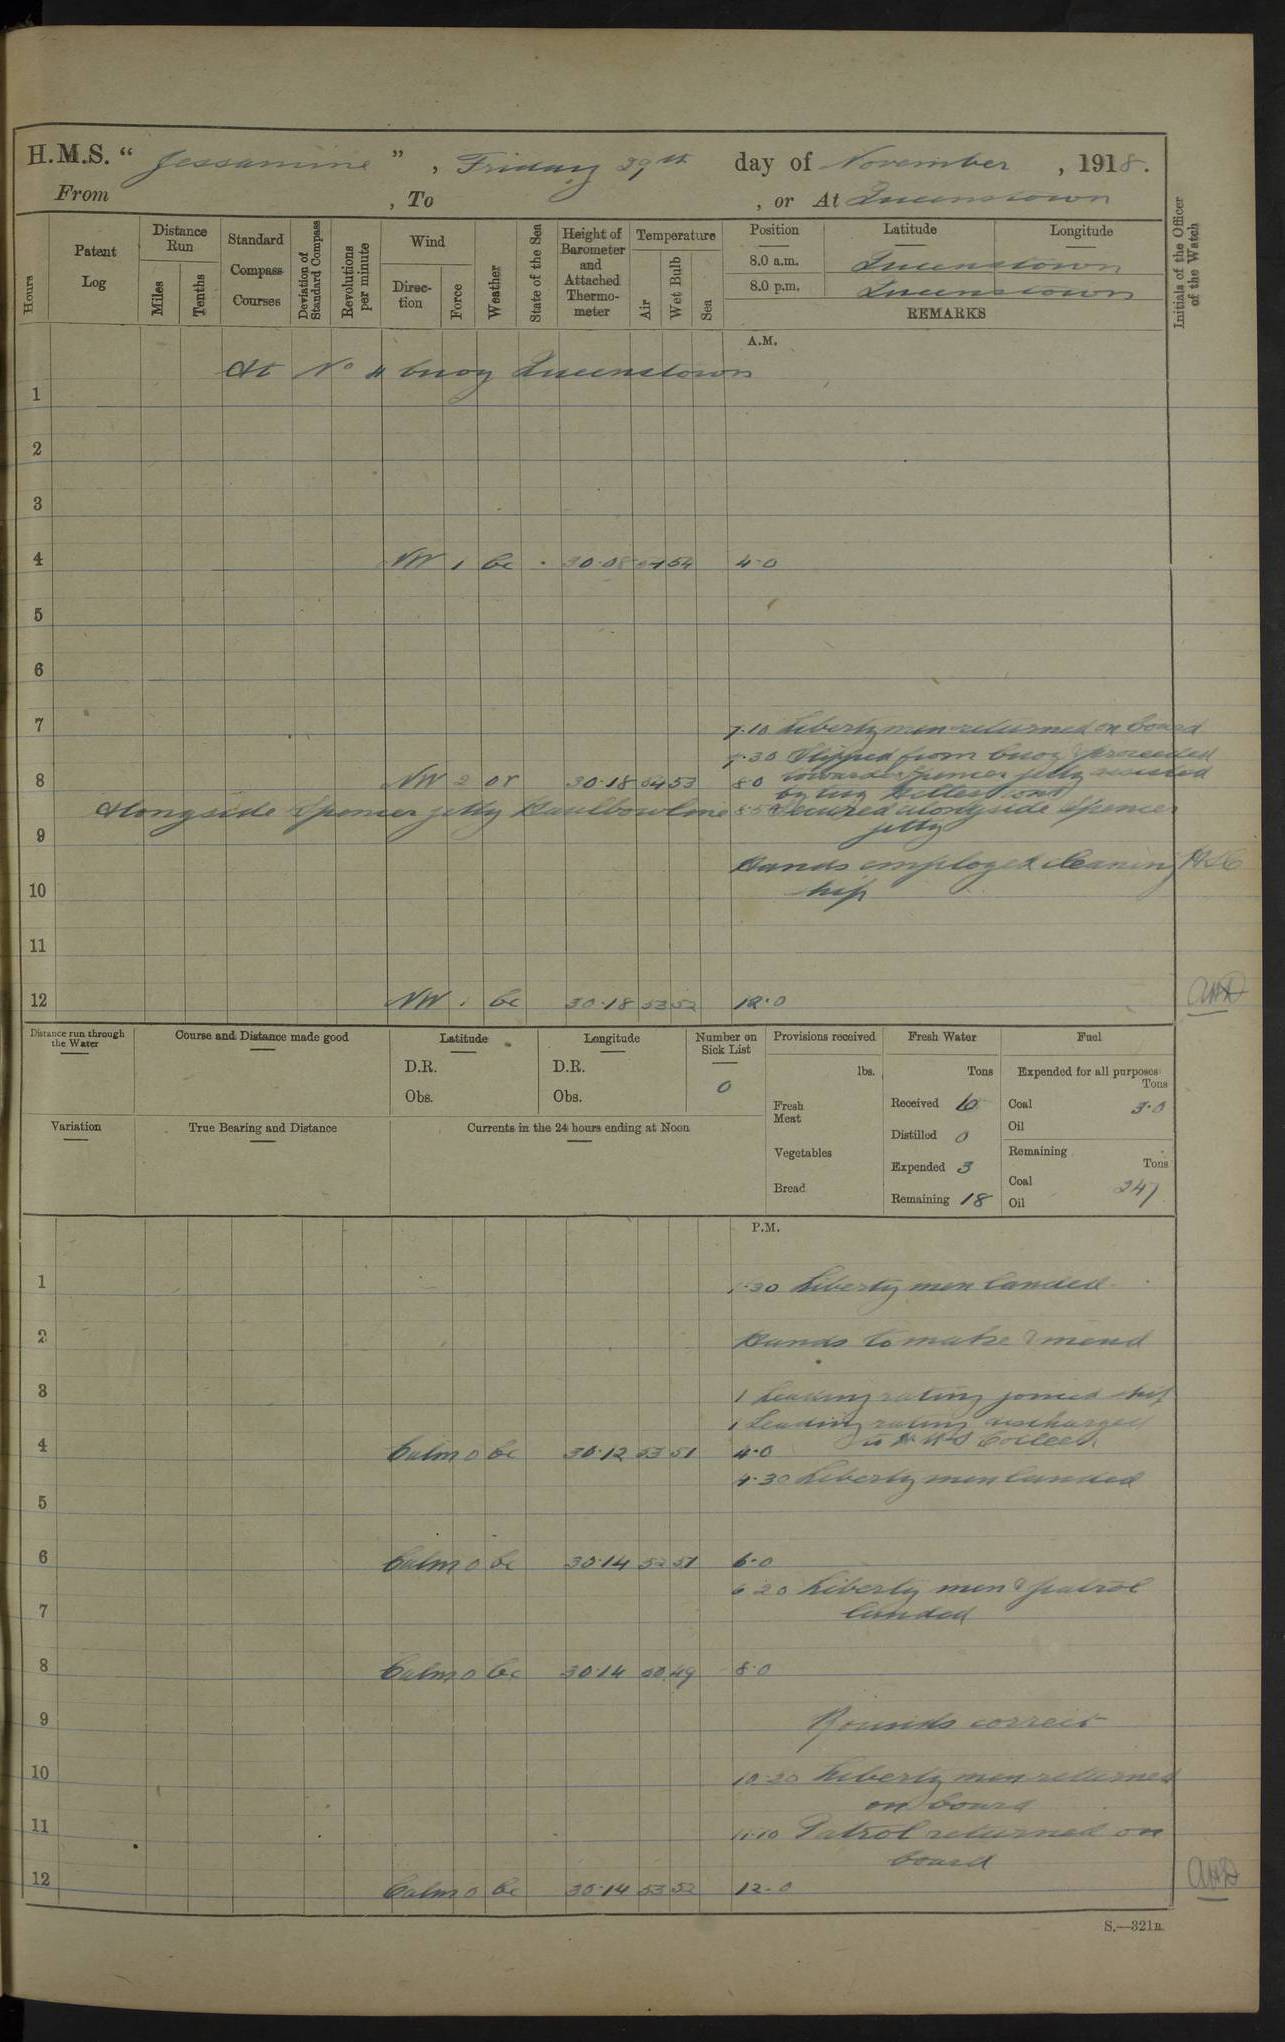 H.M.S. "Jessamine", Friday 29th day of November, 1918.
From , To , or At Queenstown
Hours
Patent Log
Distance Run
Miles
Tenths
Standard Compass Courses
Deviation of Standard Compass
Revolutions per minute
Wind
Direction
Force
Weather
State of the Sea
Height of Barometer and Attached Thermometer
Temperature
Air
Wet Bulb
Sea
Position
Latitude
Longitude
8.0 a.m. Queenstown
8.0 p.m. Queenstown
REMARKS
Initials of the Officer of the Watch
A.M.
At No 4 buoy Queenstown
1
2
3
4 NW 1 bc 30.08 54 4.0
5
6
7
7.10 Liberty men returned on board
7.30 Slipped from buoy & proceeded
8 NW 2 or 30.18 54 53 8.0 towards Spencer jetty assisted
by tug
Alongside Spencer jetty Haulbowline Secured alongside Spencer
9 jetty
Hands employed cleaning
10 ship
11
12 NW 1 bc 30.18 53 52 12.0
Distance run through the Water
Course and Distance made good
Latitude
D.R.
Obs.
Longitude
D.R.
Obs.
Number on Sick List
0
Provisions received
lbs.
Fresh Meat
Vegetables
Bread
Fresh Water
Tons
Received 10
Distilled 0
Expended 3
Remaining 18
Fuel
Expended for all purposes
Tons
Coal 3.0
Oil
Remaining
Tons
Coal 247
Oil
Variation
True Bearing and Distance
Currents in the 24 hours ending at Noon
P.M.
1 1.30 Liberty men landed
2 Hands to make & mend
3 1 Leading rating joined ship
1 Leading rating discharged
to HMS
4 Calm 0 bc 30.12 53 51 4.0
4.30 Liberty men landed
5
6 Calm 0 bc 30.14 52 51 6.0
6.20 Liberty men & patrol
7 landed
8 Calm 0 bc 30.14 50 49 8.0
9 Rounds correct
10 10.20 Liberty men returned
on board
11 11.10 Patrol returned on
board
12 Calm 0 bc 30.14 53 52 12.0
S.—321B.